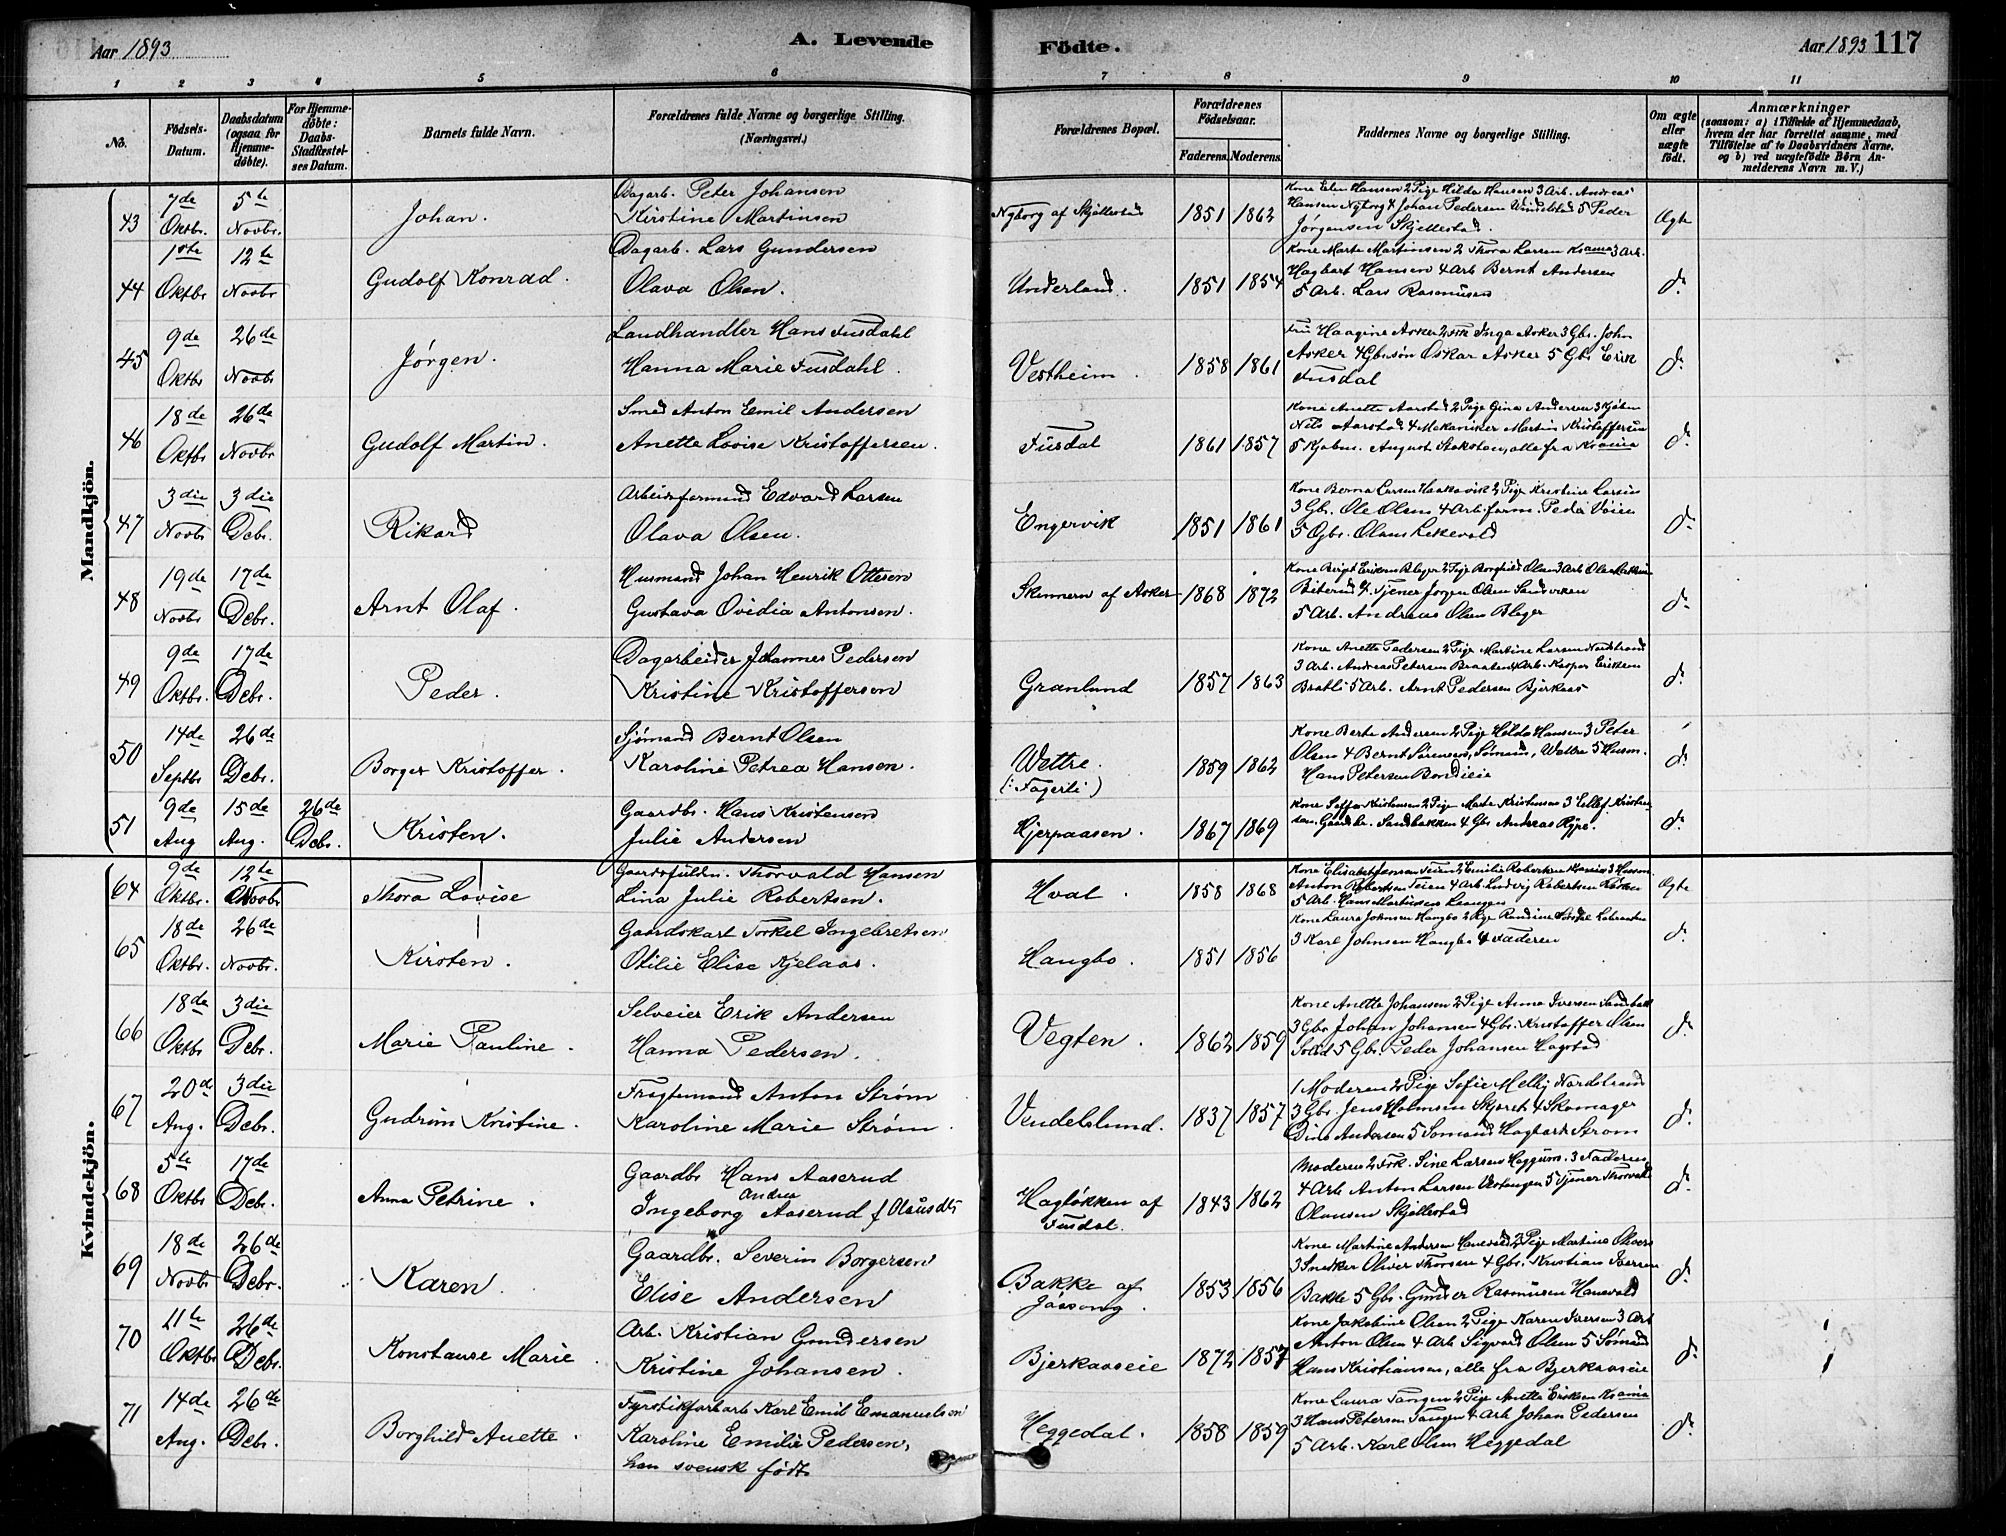 Aar 1893
A. Levende
Födte.
Aar 1893 117
1 2 3 4 5 6 7 8 9 10 11
No.
Födsels-Datum.
Daabsdatum (ogsaa for Hjemmedøbte).
For Hjemmedøbte: Daabs-Stadfæstelses Datum.
Barnets fulde Navn.
Forældrenes fulde Navne og borgerlige Stilling. (Næringsvei.)
Forældrenes Bopæl.
Forældrenes Födselsaar.
Faderens. Moderens.
Faddernes Navne og borgerlige Stilling.
Om ægte eller uægte födt.
Anmærkninger
(saasom: a) i Tilfælde af Hjemmedaab, hvem der har forrettet samme, med Tilföielse af to Daabsvidners Navne. og b) ved uægtefödte Börn Anmelderens Navn m. V.)
Mandkjön.
43 7de Oktbr. 5te Novbr. Johan. Dagarb. Peter Johansen
Kirstine Martinsen
Nyborg af Skjellestad 1851 1862
Kone Elen Hansen 2 Pige Hilda Hansen 3 Arb. Andreas
Hansen Nyborg 4 Johan Pedersen 5 Peder
Jørgensen Skjellestad.
Ægte
44 1ste Oktbr 12te Novbr Gudolf Konrad. Dagarb. Lars Gundersen
Olava Olsen.
Underland. 1851 1854
Kone Marte Martinsen 2 Thora Larsen Krania 3 Arb.
Hagbart Hansen 4 Arb Bernt Andersen
5 Arb. Lars Rasmusen
do
45 9de Oktbr 26de Novbr Jørgen. Landhandler Hans Fusdahl
Hanna Marie Fusdahl.
Vestheim. 1858 1861
Fru Haagine Asker 2 Frk Inga Asker 3 Gbr. John
Asker 4 Gbr.søn Oskar Asker 5 Gbr Erik
Fusdal
do
46 18de Oktbr 26de Novbr Gudolf Martin. Smed Anton Emil Andersen
Anette Lovise Kristoffersen.
Fusdal 1861 1857
Kone Anette Aarstad 2 Pige Gina Andersen 3 Kjøbm
Nils Aarstad 4 Mekaniker Martin Kristoffersen
5 Kjøbm. August Stoksten, alle fra Krania
do
47 3die Novbr 3die Debr. Rikard Arbeidsformand Edvard Larsen
Olava Olsen.
Engervik 1851 1861
Kone Berna Larsen Haakavik 2 Pige Kristine Larsen
3 Gbr. Ole Olsen 4 Arb.form. Peder Voien
5 Gbr. Olaus Lekevold
do
48 19de Novbr 17de Debr. Arnt Olaf. Husmand Johan Henrik Ottesen
Gustava Ovidia Antonsen.
Skinnern af Asker 1868 1872
Kone Birgit Eriksen Bleger 2 Pige Borghild Olsen 3 Arb Ole
Biterud 4 Tjener Jørgen Olsen Sandviken
5 Arb. Andreas Olsen Bleger
do
49 9de Oktbr. 17de Debr. Peder. Dagarbeider Johannes Pedersen
Kristine Kristoffersen
Granlund 1857 1863
Kone Anette Pedersen 2 Pige Martine Larsen Nordstrand
3 Arb. Andreas Petersen Braaten 4 Arb. Kasper Eriksen
Bratli 5 Arb. Arnt Pedersen Bjerkaas
do
50 14de Septbr 26de Debr. Borger Kristoffer. Sjømand Bernt Olsen
Karoline Petrea Hansen.
Wettre.
(: Fagerli) 1859 1862
Kone Berte Andersen 2 Pige Hilda Hansen 3 Peter
Olsen 4 Bernt Sørensen, Sømænd, Wettre 5 Husm.
Hans Petersen Bondieie
do
51 9de Aug 15de Aug. 26de Debr. Kristen. Gaardbr. Hans Kristensen
Julie Andersen
Hjerpaasen. 1867 1869
Kone Soffie Kristensen 2 Pige Marte Kristensen 3 Ellef Kristen
sen, Gaardbr. Sandbakken 4 Gbr Andreas Rype.
do
Kvindekjön.
64 9de Oktbr. 12te Novbr Thora Lovise Gaardsfuldm. Thorvald Hansen
Lina Julie Robertsen.
Hval. 1858 1868
Kone Elisabet Jensen Teien 2 Emilie Robertsen 3 Husm.
Anton Robertsen Teien 4 Arb. Ludvig Robertsen Røken
5 Arb. Hans Martinsen Laangen
Ægte
65 18de Oktbr. 26de Novbr. Kirsten. Gaardskarl Torkel Ingebretsen
Otilie Elise Kjelaas.
Hangbo. 1851 1856
Kone Laura Johnsen Hangbo 2 Pige Randine
3 Karl Johnsen Hangbo 4 Faderen
do
66 18de Oktbr 3die Debr. Marie Pauline. Selveier Erik Andersen
Hanna Pedersen.
Vegten. 1862 1859
Kone Anette Johansen 2 Pige Anna Iversen Sandbak
3 Gbr Johan Johansen 4 Gbr. Kristoffer Olsen
Solid 5 Gbr. Peder Johansen Hogstad
do
67 20d Aug. 3die Debr. Gudrun Kristine. Fragtemand Anton Strøm
Karoline Marie Strøm.
Vendelslund. 1837 1857
1 Moderen 2 Pige Sofie Melby Nordstrand
3 Gbr. Jens Holmsen Skjøret 4 Skomager
Andersen 5 Sømand Hagbart Strøm
do
68 5te Oktbr 17de Debr. Anna Petrine. Gaardbr Hans Aaserud
Andrea
Ingeborg Aaserud f Olausdtr
Hagløkken af
Fusdal. 1843 1862
Moderen 2 Frk. Sine Larsen Heggum. 3 Faderen
4 Arb Anton Larsen Vestengen 5 Tjener Thorvald
Olausen Skjellestad
do
69 18de Novbr 26de Debr. Karen. Gaardbr. Severin Borgersen
Elise Andersen
Bakke af
Jøssong. 1853 1856
Kone Martine Andersen Hanevold 2 Pige Martine Olivers
3 Snedker Oliver Thorsen 4 Gbr. Kristian Iversen
Bakke 5 Gbr. Gunder Rasmusen Hanevold
do
70 11te Oktbr 26de Debr. Konstanse Marie. Arb. Kristian Gundersen
Kristine Johansen.
Bjerkaaseie 1872 1857
Kone Jakobine Olsen 2 Pige Karen Iversen 3 Arb
Anton Olsen 4 Arb Sigvard Olsen 5 Sømand
Hans Kristiansen, alle fra Bjerkaaseie
do
71 14de Aug. 26de Debr. Borghild Anette. Fyrstikfarbarb Karl Emil Emanuelsen
Karoline Emilie Pedersen,
han svensk født
Heggedal. 1858 1859
Kone Laura Tangen 2 Pige Anette Eriksen Krania
3 Hans Petersen Tangen 4 Arb Johan Pedersen
5 Arb. Karl Olsen Heggedal
do